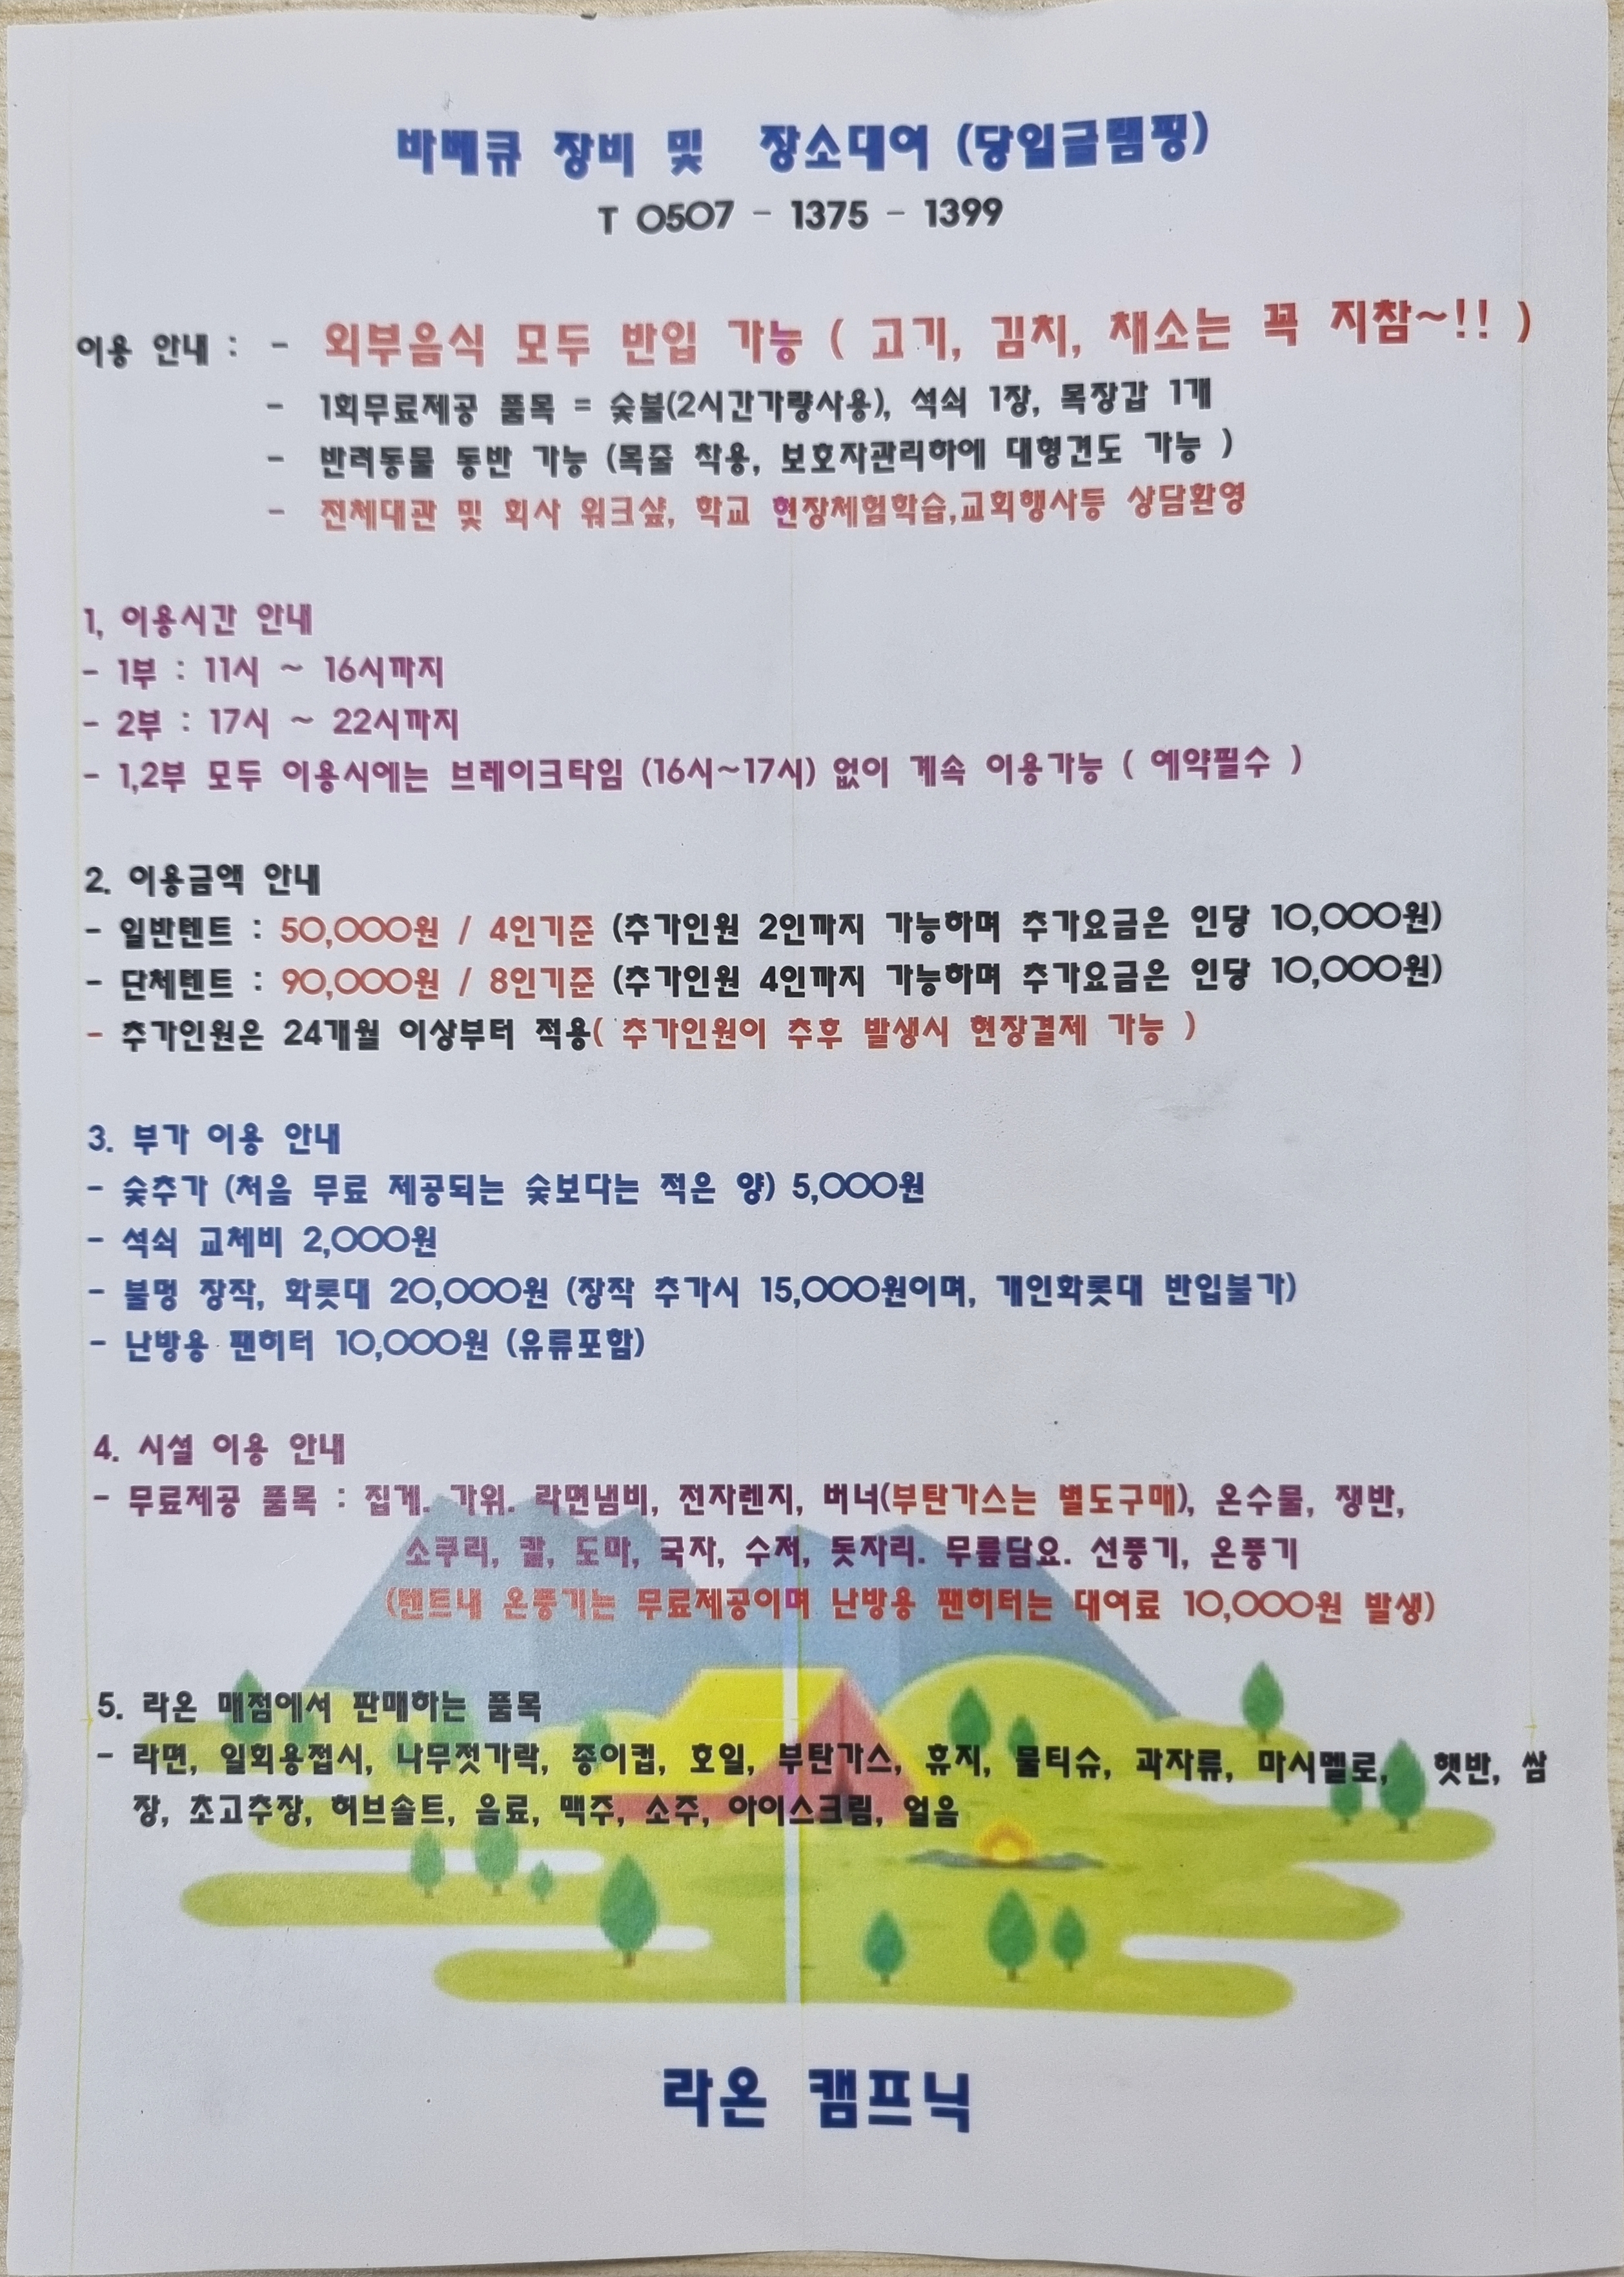 바베큐 장비 및 장소대여 (당일글램핑)
T 0507 - 1375 - 1399
이용 안내 : - 외부음식 모두 반입 가능 ( 고기, 김치, 채소는 꼭 지참~!! )
- 1회무료제공 품목 = 숯불(2시간가량사용), 석쇠 1장, 목장갑 1개
- 반려동물 동반 가능 (목줄 착용, 보호자관리하에 대형견도 가능 )
- 전체대관 및 회사 워크샾, 학교 현장체험학습,교회행사등 상담환영
1, 이용시간 안내
- 1부 : 11시 ~ 16시까지
- 2부 : 17시 ~ 22시까지
- 1,2부 모두 이용시에는 브레이크타임 (16시~17시) 없이 계속 이용가능 ( 예약필수 )
2. 이용금액 안내
- 일반텐트 : 50,000원 / 4인기준 (추가인원 2인까지 가능하며 추가요금은 인당 10,000원)
- 단체텐트 : 90,000원 / 8인기준 (추가인원 4인까지 가능하며 추가요금은 인당 10,000원)
- 추가인원은 24개월 이상부터 적용( 추가인원이 추후 발생시 현장결제 가능 )
3. 부가 이용 안내
- 숯추가 (처음 무료 제공되는 숯보다는 적은 양) 5,000원
- 석쇠 교체비 2,000원
- 불멍 장작, 화롯대 20,000원 (장작 추가시 15,000원이며, 개인화롯대 반입불가)
- 난방용 팬히터 10,000원 (유류포함)
4. 시설 이용 안내
- 무료제공 품목 : 집게. 가위. 라면냄비, 전자렌지, 버너(부탄가스는 별도구매), 온수물, 쟁반,
소쿠리, 칼, 도마, 국자, 수저, 돗자리. 무릎담요. 선풍기, 온풍기
(텐트내 온풍기는 무료제공이며 난방용 팬히터는 대여료 10,000원 발생)
5. 라온 매점에서 판매하는 품목
- 라면, 일회용접시, 나무젓가락, 종이컵, 호일, 부탄가스, 휴지, 물티슈, 과자류, 마시멜로, 햇반, 쌈
장, 초고추장, 허브솔트, 음료, 맥주, 소주, 아이스크림, 얼음
라온 캠프닉